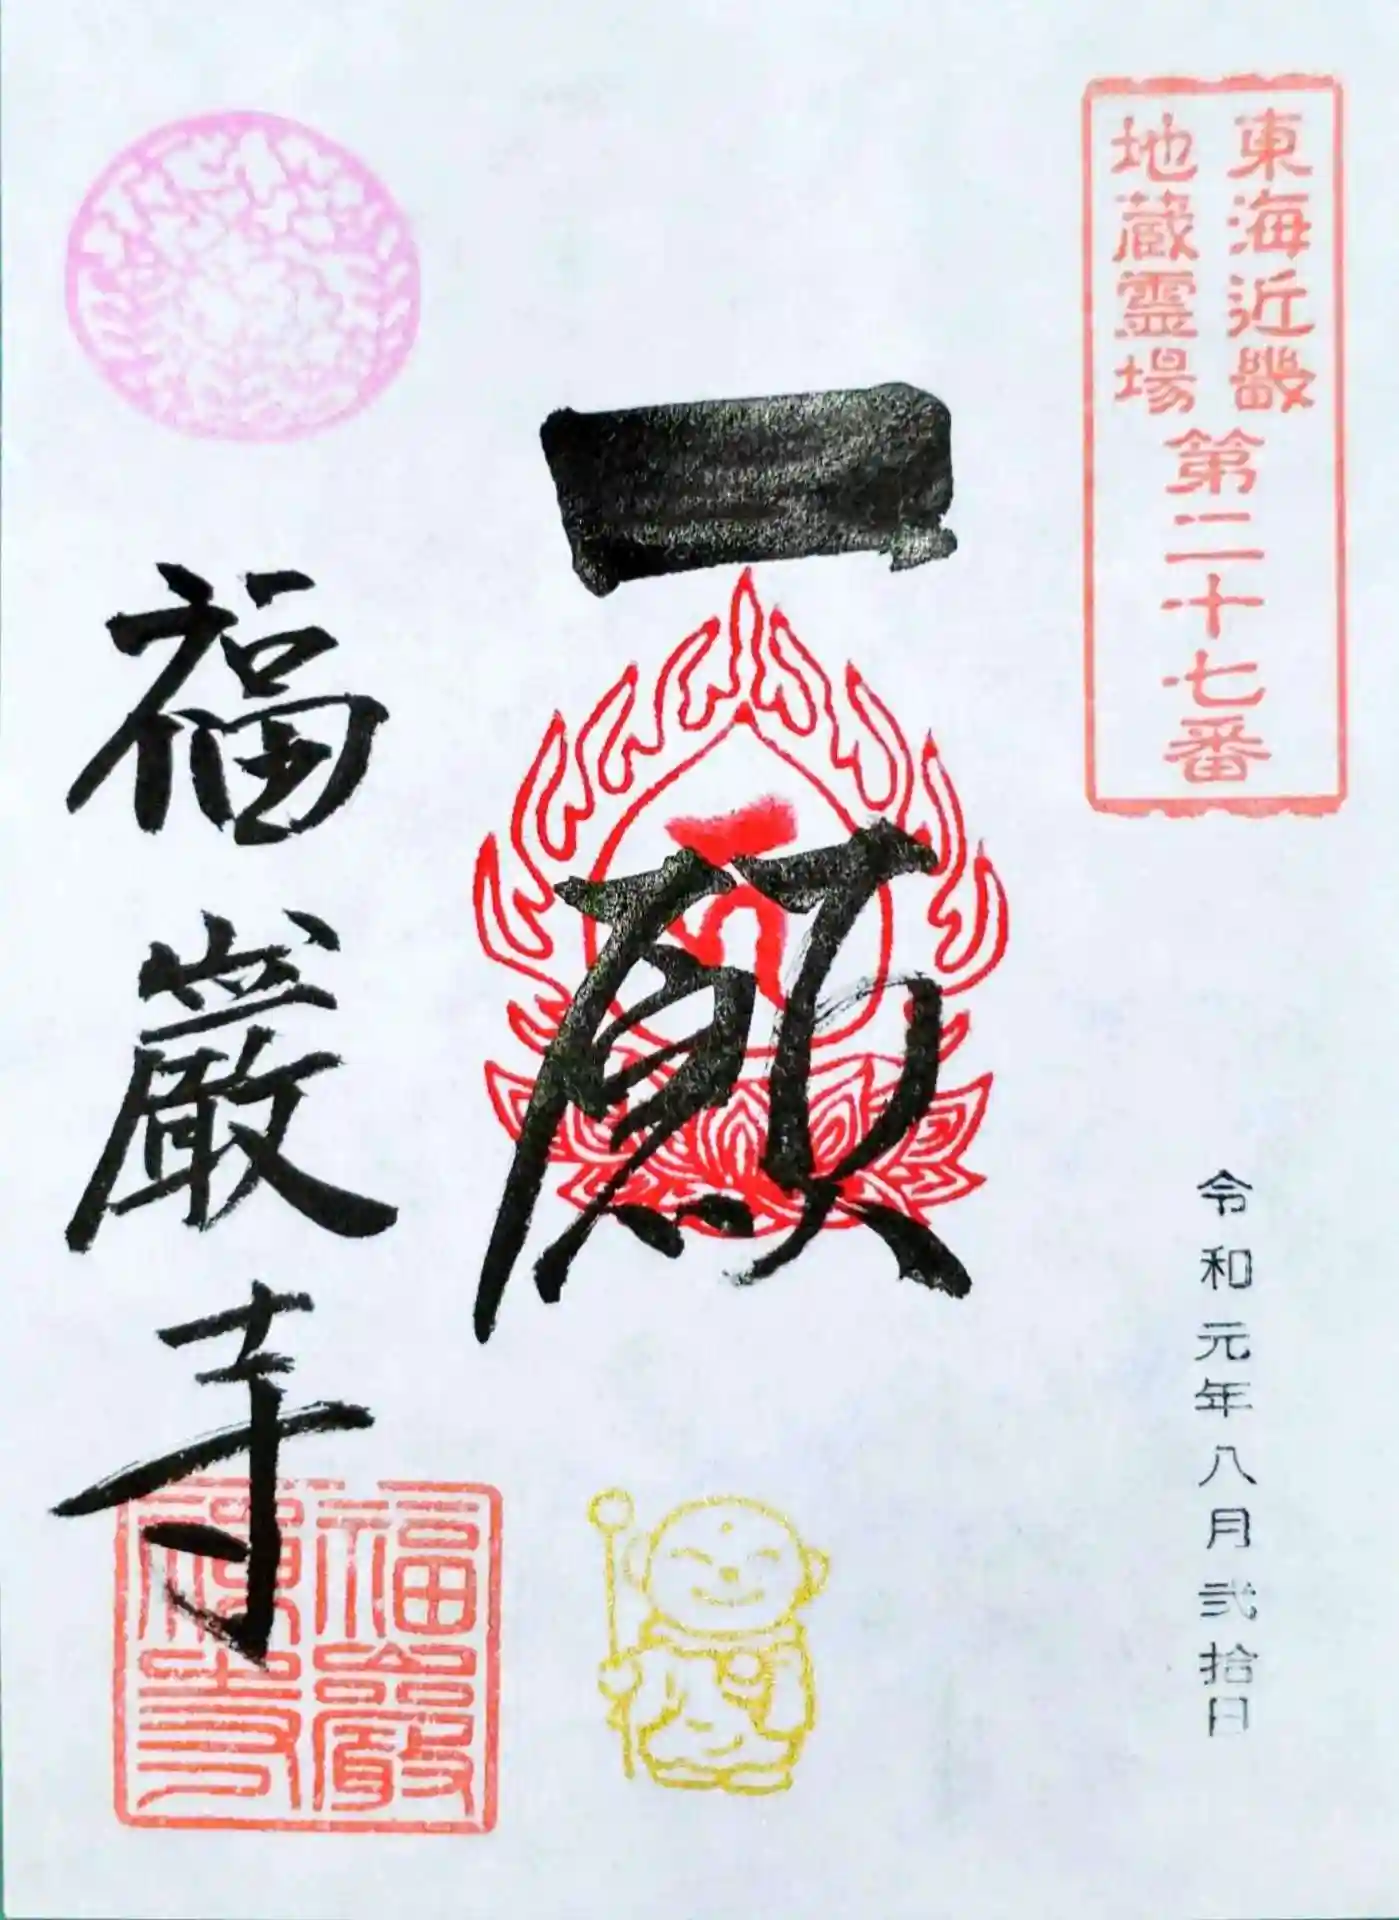 東海近畿
地蔵霊場
第二十七番
令和元年八月弐拾日
一願
福巌寺
福巌
禅寺